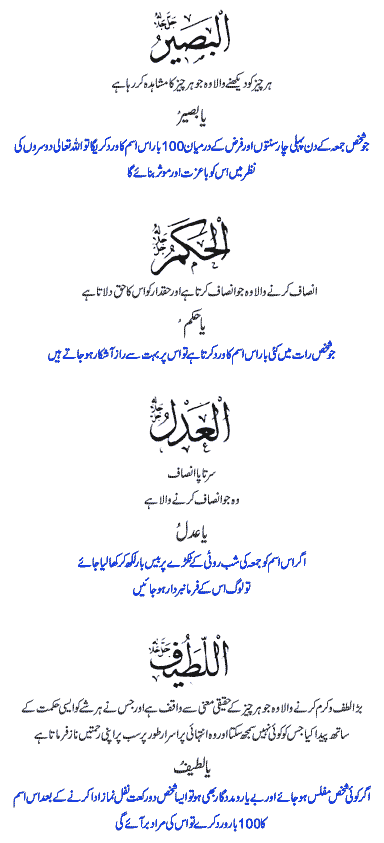 البَصِيرُ جل جلاله
ہر چیز کو دیکھنے والا وہ جو ہر چیز کا مشاہدہ کر رہا ہے
یا بصیرُ
جو شخص جمعہ کے دن پہلی چار سنتوں اور فرض کے درمیان 100 بار اس اسم کا ورد کریگا تو اللہ تعالی دوسروں کی
نظر میں اس کو باعزت اور موثر بنائے گا
الحَكَمُ جل جلاله
انصاف کرنے والا وہ جو انصاف کرتا ہے اور حقدار کو اس کا حق دلاتا ہے
یا حکم ُ
جو شخص رات میں کئی بار اس اسم کا ورد کرتا ہے تو اس پر بہت سے راز آشکار ہو جاتے ہیں
العَدْلُ جل جلاله
سرتاپا انصاف
وہ جو انصاف کرنے والا ہے
یا عدلُ
اگر اس اسم کو جمعہ کی شب روٹی کے ٹکڑے پر بیس بار لکھ کر کھا لیا جائے
تو لوگ اس کے فرمانبردار ہو جائیں
اللَّطِيفُ جل جلاله
بڑا لطف و کرم کرنے والا وہ جو ہر چیز کے حقیقی معنی سے واقف ہے اور جس نے ہر شے کو ایسی حکمت کے
ساتھ پیدا کیا جس کو کوئی نہیں سمجھ سکتا اور وہ انتہائی پراسرار طور پر سب پر اپنی رحمتیں نازفرماتا ہے
یا لطیفُ
اگر کوئی شخص مفلس ہو جائے اور بے یار و مددگار بھی ہو تو ایسا شخص دو رکعت نفل نماز ادا کرنے کے بعد اس اسم
کا 100 بار ورد کرے تو اس کی مراد بر آئے گی